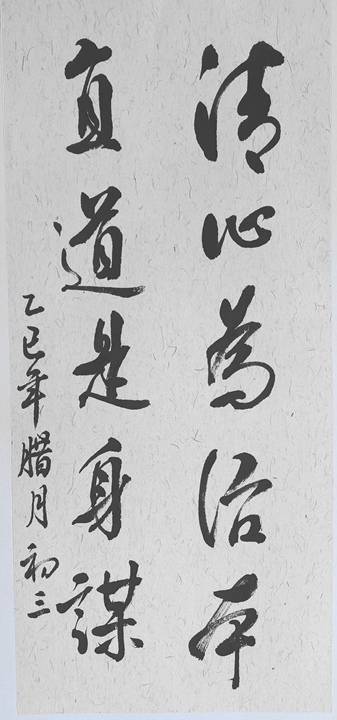 清心為治本
直道是身謀
乙巳年腊月初三